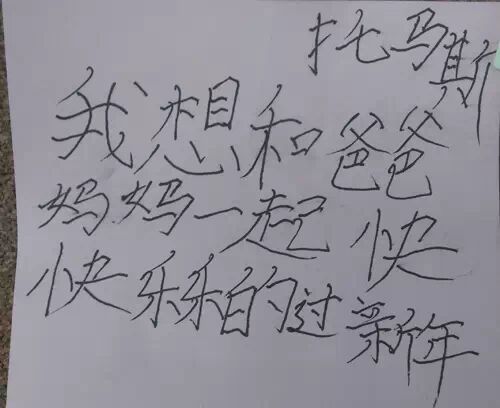 托马斯
我想和爸爸
妈妈一起快
快乐乐的过新年